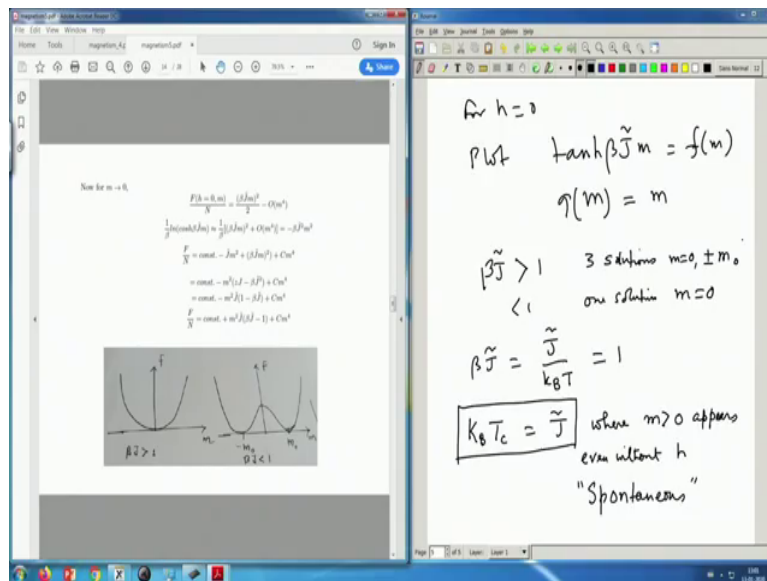 magnetism5.pdf - Adobe Acrobat Reader DC
File Edit View Window Help
Home Tools magnetism_4.p magnetism5.pdf × Sign In
Share
Now for m → 0,
F(h = 0, m)/N = (βJ̃m)²/2 − O(m⁴)
F/N = const. − J̃m² + (βJ̃m)²) + Cm⁴
= const. − m²J̃(1 − βJ̃) + Cm⁴
F/N = const. + m²J̃(βJ̃ − 1) + Cm⁴
f
m
βJ̃ > 1
F
-m₀ m₀ m
βJ̃ < 1
Journal
File Edit View Journal Tools Options Help
Sans Normal 12
For h = 0
Plot tanh βJ̃m = f(m)
g(m) = m
βJ̃ > 1 3 solutions m=0, ±m₀
< 1 one solution m=0
βJ̃ = J̃/k_BT = 1
K_B T_c = J̃ where m>0 appears
even without h
"Spontaneous"
Page 5 of 5 Layer: Layer 1